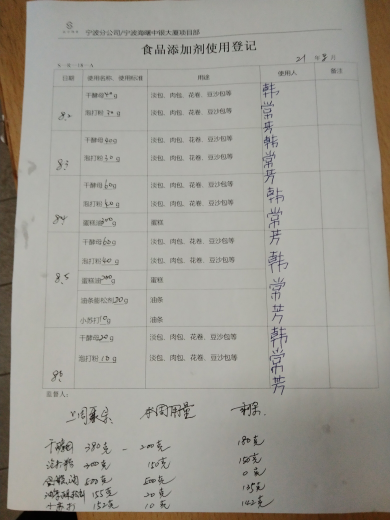 宁波分公司/宁波海曙中银大厦项目部
食品添加剂使用登记
21年8月
日期 使用名称、使用标准 用途 使用人 备注
8.2 干酵母40g 淡包、肉包、花卷、豆沙包等 韩常芳
泡打粉30g 淡包、肉包、花卷、豆沙包等
8.3 干酵母40g 淡包、肉包、花卷、豆沙包等 韩常芳
泡打粉30g 淡包、肉包、花卷、豆沙包等
8.4 干酵母60g 淡包、肉包、花卷、豆沙包等 韩常芳
泡打粉40g 淡包、肉包、花卷、豆沙包等
蛋糕油 蛋糕
8.5 干酵母60g 淡包、肉包、花卷、豆沙包等 韩常芳
泡打粉40g 淡包、肉包、花卷、豆沙包等
蛋糕油 蛋糕
油条膨松剂20g 油条
小苏打10g 油条
8.6 干酵母 淡包、肉包、花卷、豆沙包等 韩常芳
泡打粉10g 淡包、肉包、花卷、豆沙包等
监督人：
上周 本周用量
干酵母 380克 - 200克 180克
泡打粉 300克 150克 150克
蛋糕油 500克 500克 0克
155克 20克 135克
小苏打 152克 10克 142克